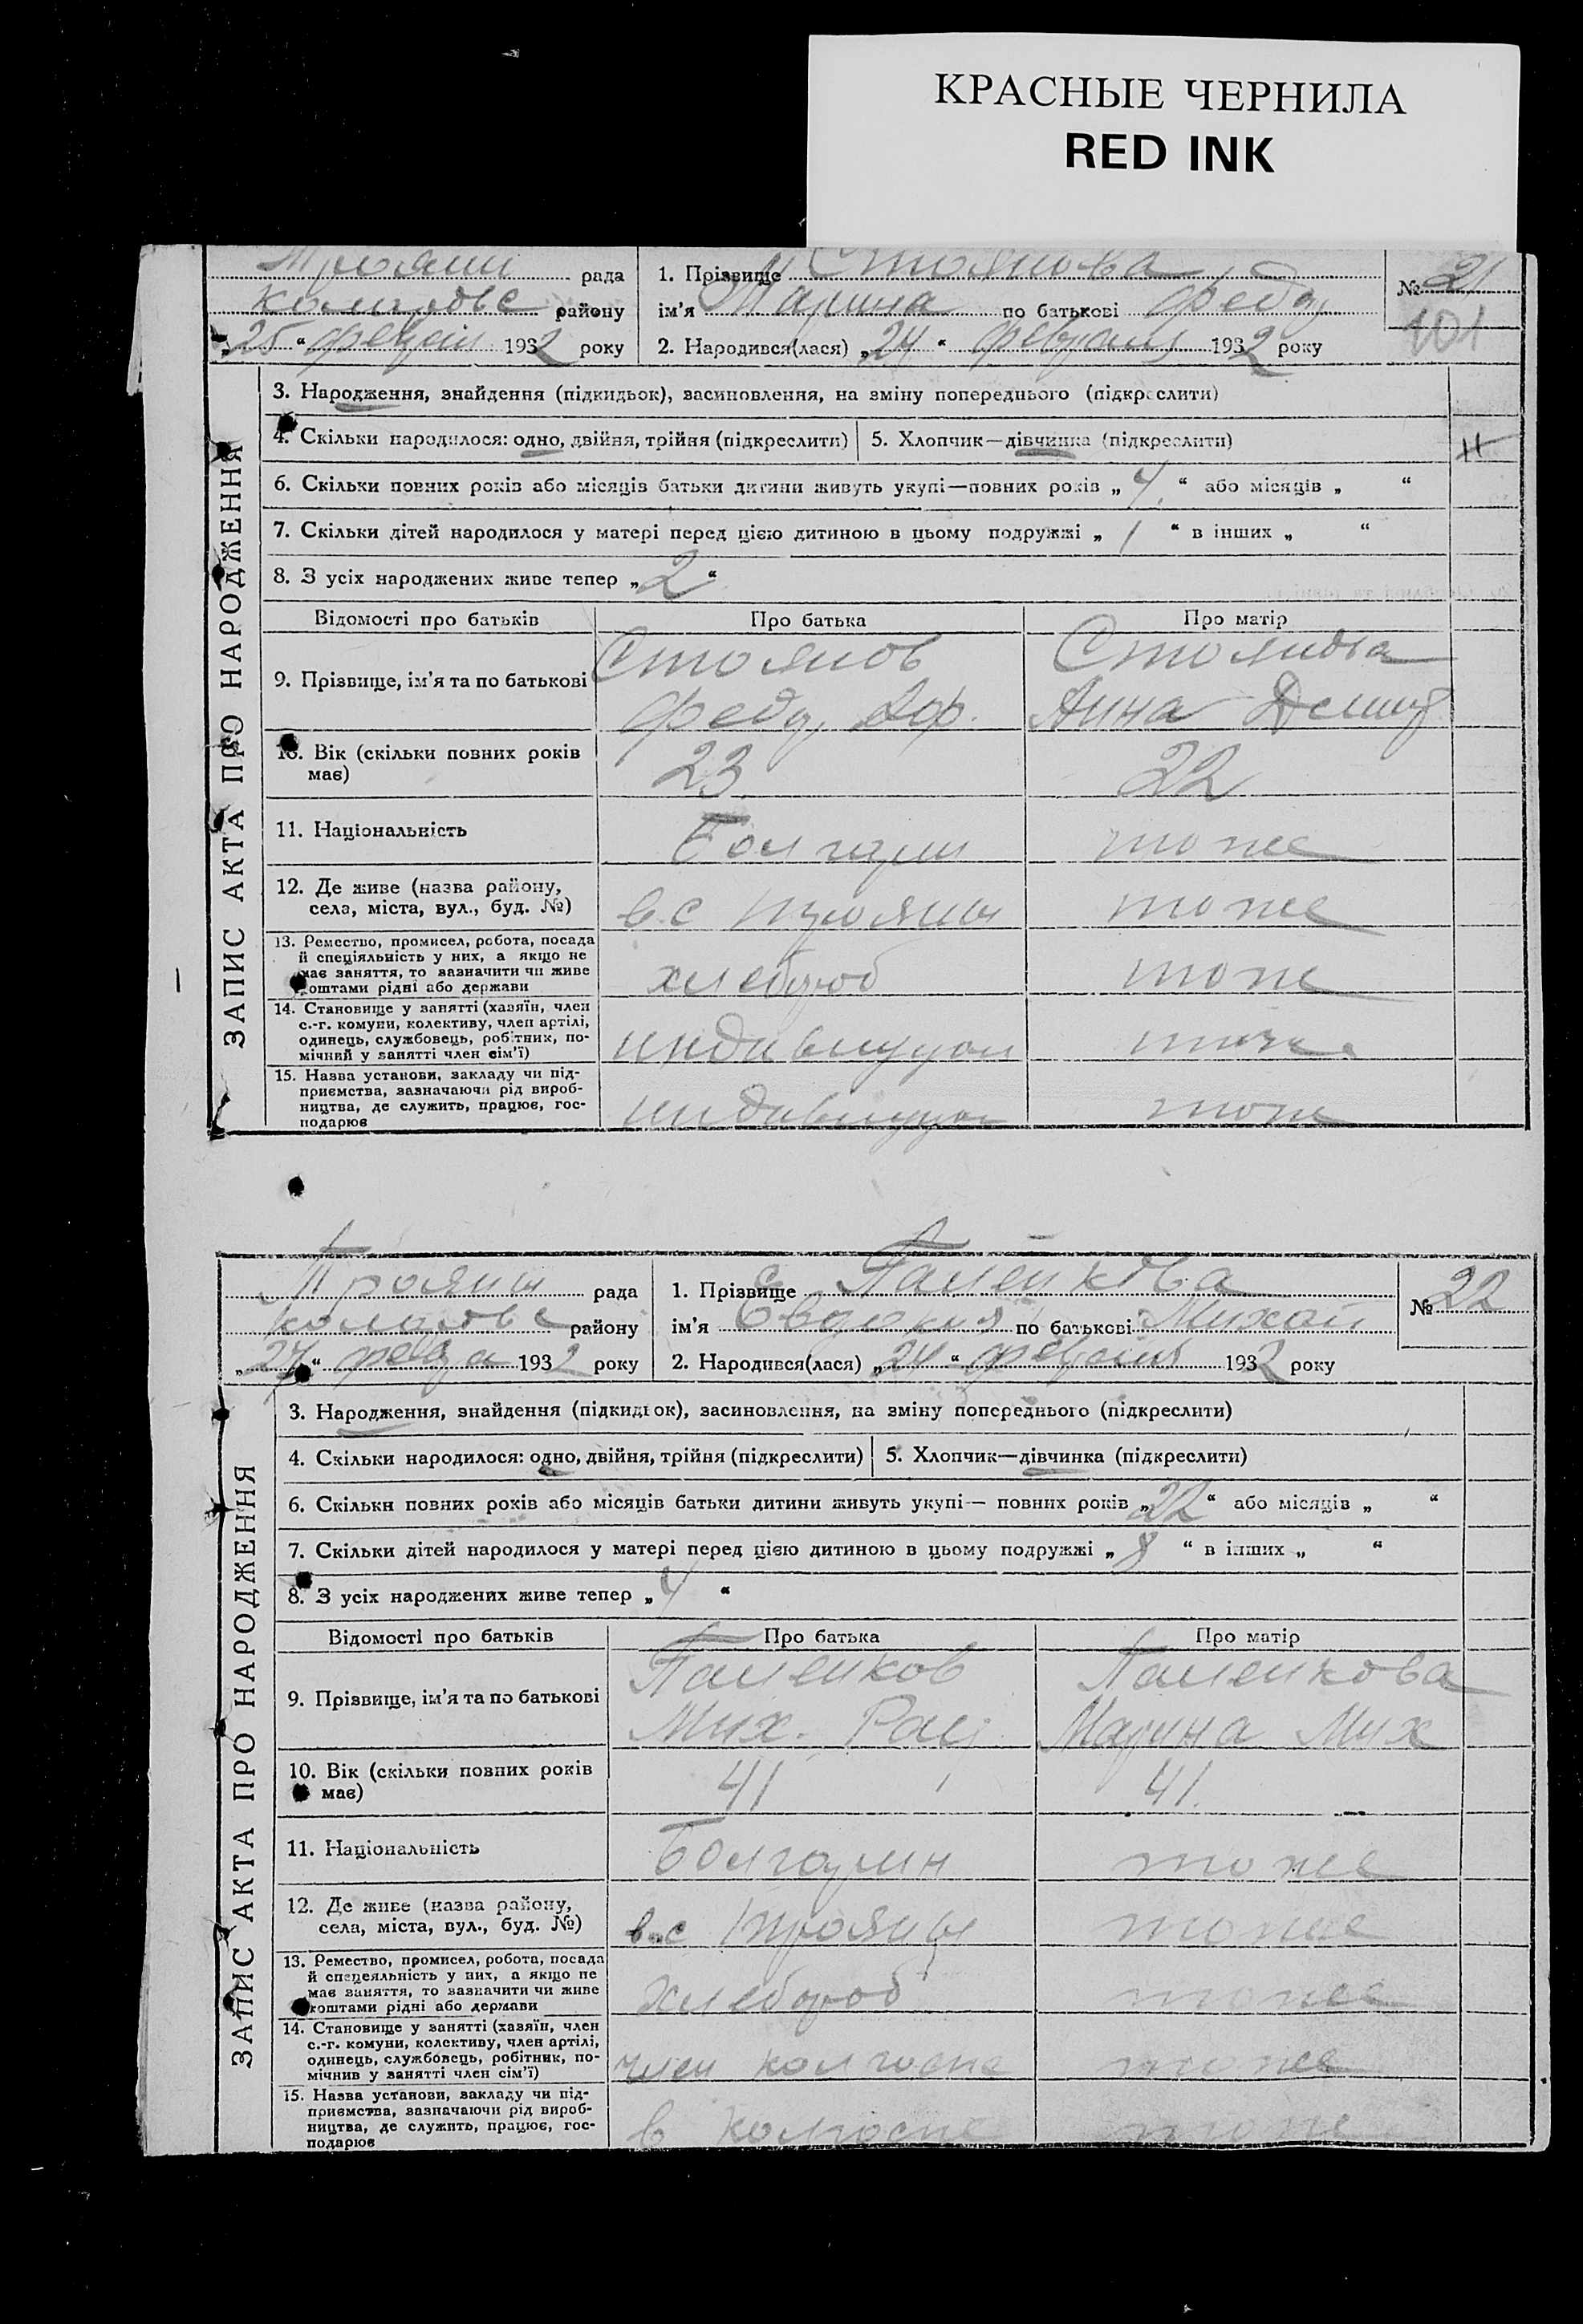 КРАСНЫЕ ЧЕРНИЛА
RED INK
Трояни рада
району
„25“ 1932 року
1. Прізвище Стоянова
ім’я Марина по батькові Федор
2. Народився(лася) „24“ февраля 1932 року
№ 21
101
ЗАПИС АКТА ПРО НАРОДЖЕННЯ
3. Народження, знайдення (підкидьок), засиновлення, на зміну попереднього (підкреслити)
4. Скільки народилося: одно, двійня, трійня (підкреслити)
5. Хлопчик—дівчинка (підкреслити)
6. Скільки повних років або місяців батьки дитини живуть укупі—повних років „4“ або місяців „ “
7. Скільки дітей народилося у матері перед цією дитиною в цьому подружжі „1“ в інших „ “
8. З усіх народжених живе тепер „2“
Відомості про батьків Про батька Про матір
9. Прізвище, ім’я та по батькові
Стоянов
Федор
Стоянова
Анна
10. Вік (скільки повних років
має)
23 22
11. Національність Болгары тоже
12. Де живе (назва району,
села, міста, вул., буд. №)
в с Трояны тоже
13. Ремество, промисел, робота, посада
й спеціяльність у них, а якщо не
має заняття, то зазначити чи живе
коштами рідні або держави
хлебороб тоже
14. Становище у занятті (хазяїн, член
с.-г. комуни, колективу, член артілі,
одинець, службовець, робітник, по-
мічний у занятті член сім’ї)
индивидуал тоже
15. Назва установи, закладу чи під-
приємства, зазначаючи рід вироб-
ництва, де служить, працює, гос-
подарює
индивидуал тоже
Трояны рада
району
„27“ 1932 року
1. Прізвище Паленкова
ім’я Евдокия по батькові Михайл
2. Народився(лася) „24“ февраля 1932 року
№ 22
ЗАПИС АКТА ПРО НАРОДЖЕННЯ
3. Народження, знайдення (підкидьок), засиновлення, на зміну попереднього (підкреслити)
4. Скільки народилося: одно, двійня, трійня (підкреслити)
5. Хлопчик—дівчинка (підкреслити)
6. Скільки повних років або місяців батьки дитини живуть укупі— повних років „22“ або місяців „ “
7. Скільки дітей народилося у матері перед цією дитиною в цьому подружжі „8“ в інших „ “
8. З усіх народжених живе тепер „4“
Відомості про батьків Про батька Про матір
9. Прізвище, ім’я та по батькові
Паленков
Мих.
Паленкова
Марина Мих
10. Вік (скільки повних років
має)
41 41.
11. Національність Болгарин тоже
12. Де живе (назва району,
села, міста, вул., буд. №)
в с Трояны тоже
13. Ремество, промисел, робота, посада
й спецеяльність у них, а якщо не
має заняття, то зазначити чи живе
коштами рідні або держави
хлебороб тоже
14. Становище у занятті (хазяїн, член
с.-г. комуни, колективу, член артілі,
одинець, службовець, робітник, по-
мічнив у занятті член сім’ї)
член колгоспа тоже
15. Назва установи, закладу чи під-
приємства, зазначаючи рід вироб-
ництва, де служить, працює, гос-
подарює
в колгоспе тоже